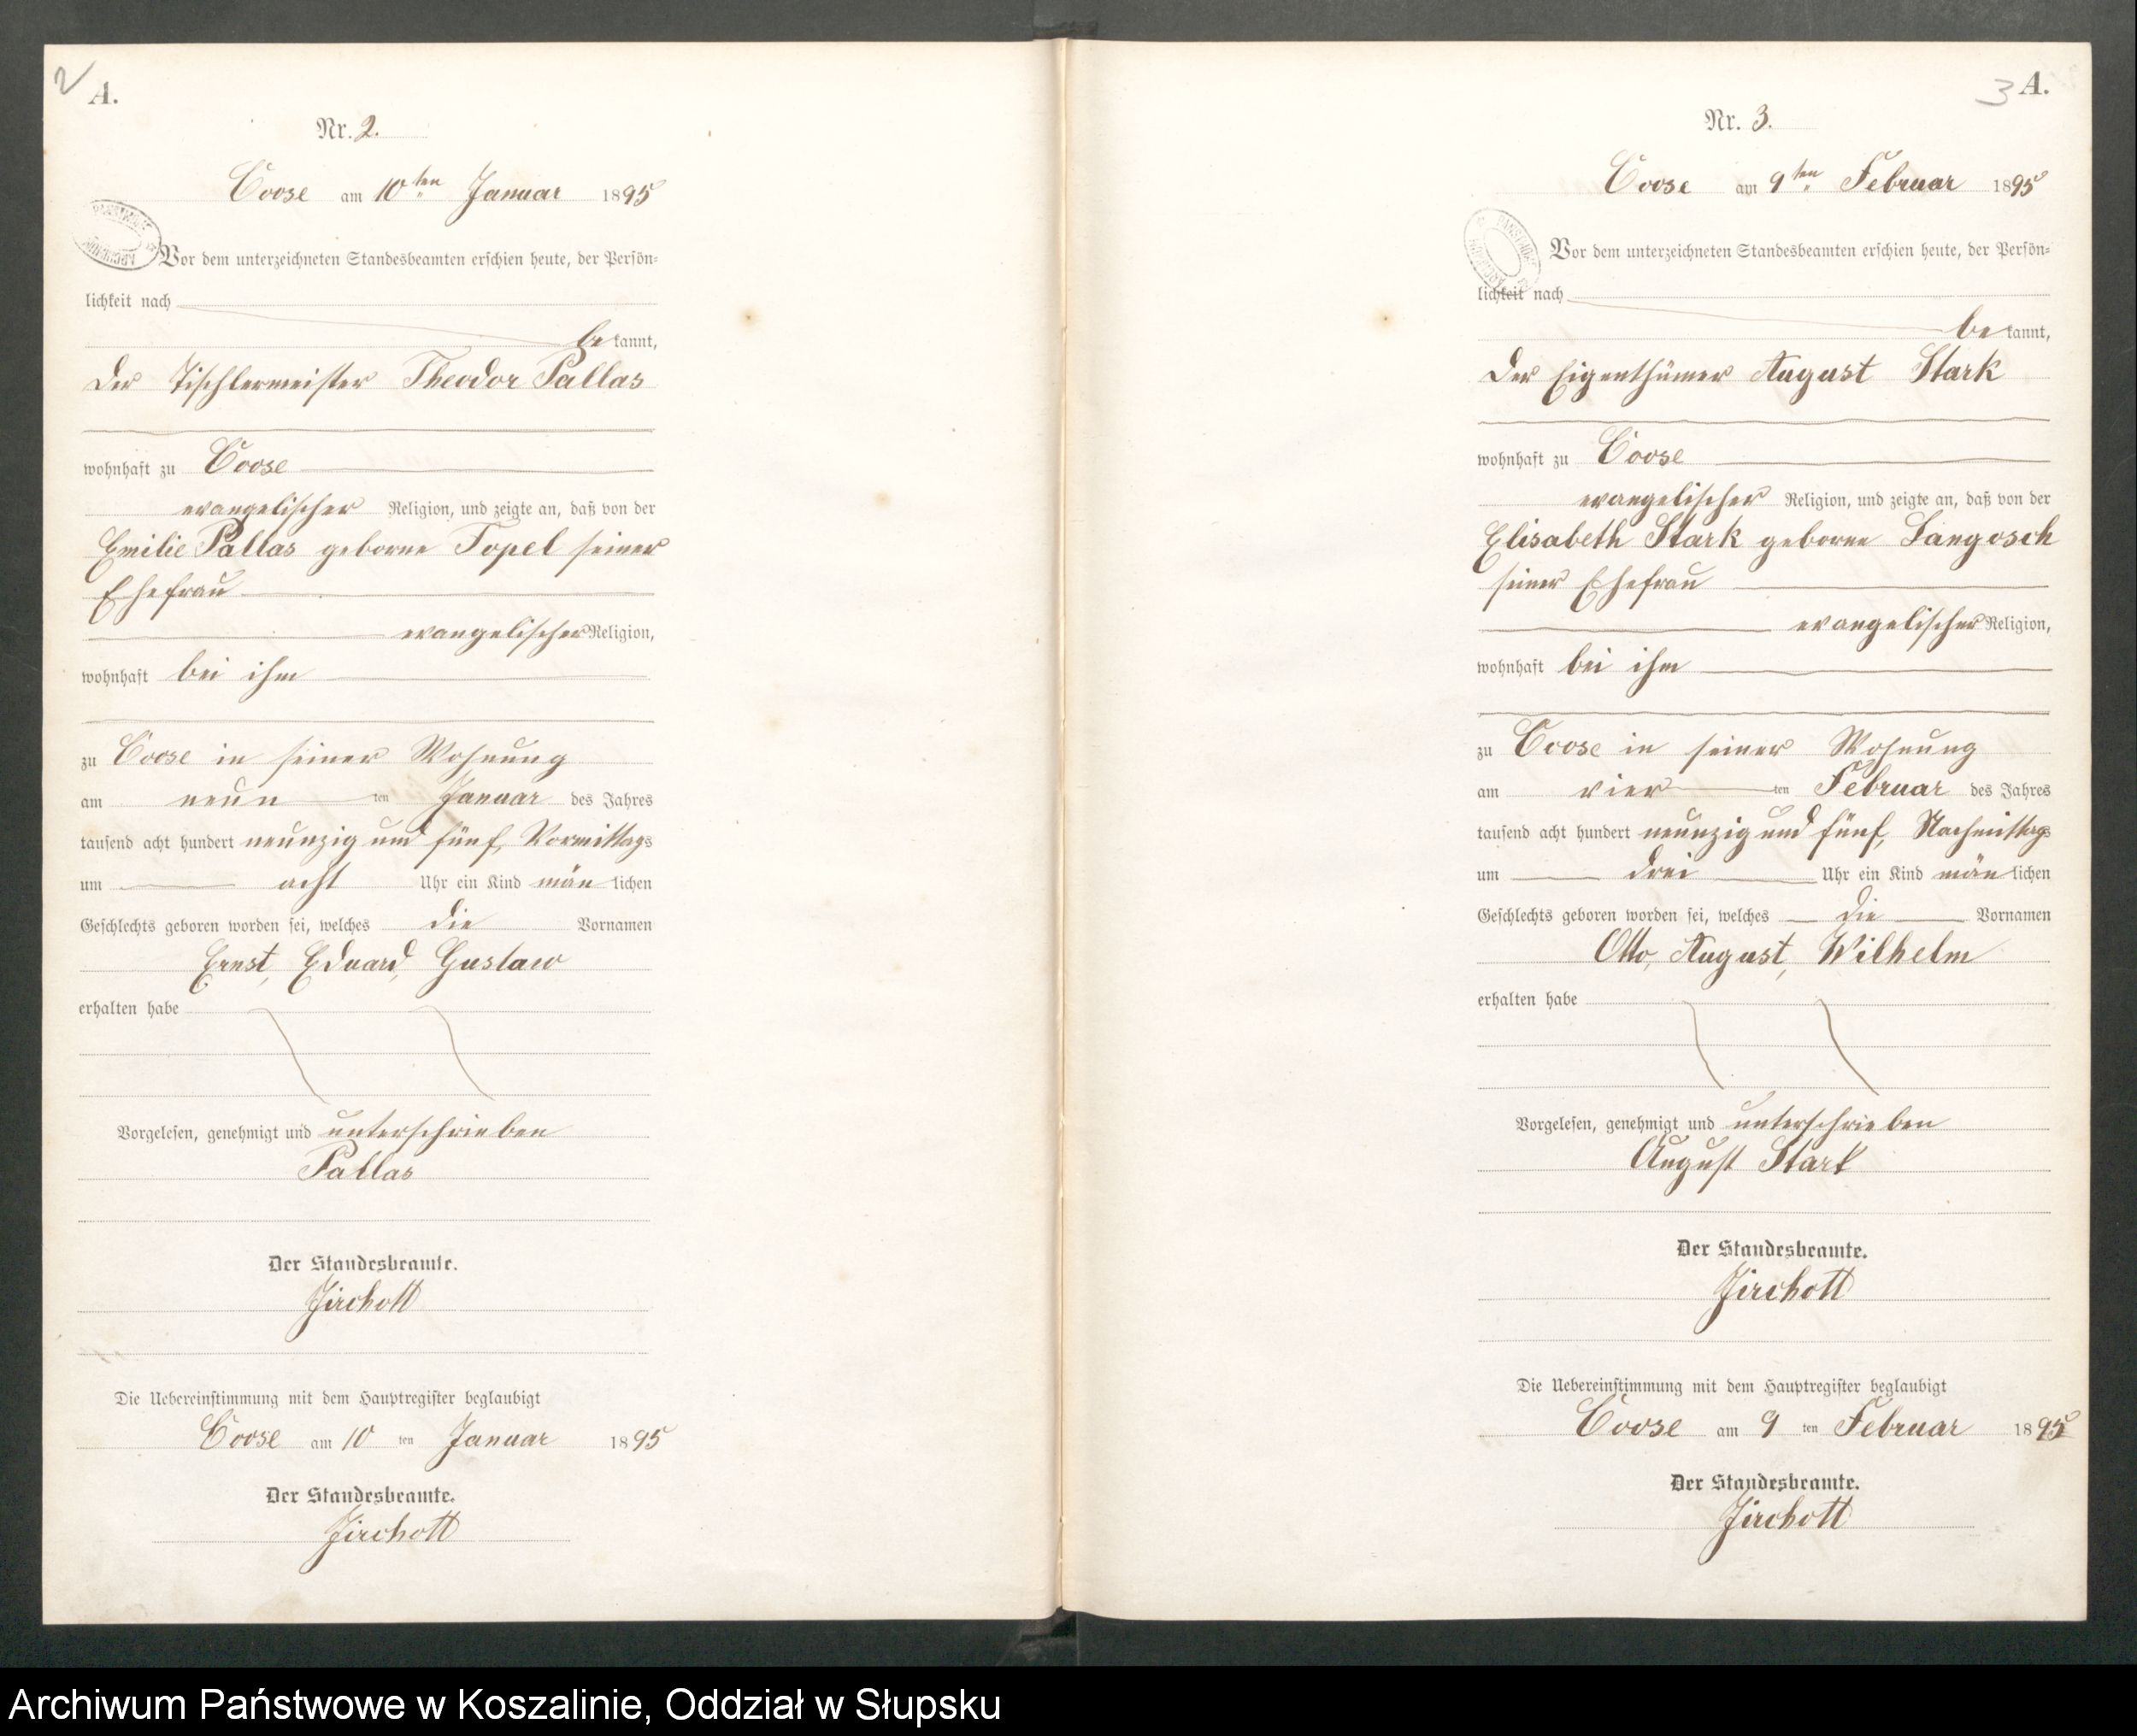 2
A.
Nr. 2.
Coose am 10ten Januar 1895
Vor dem unterzeichneten Standesbeamten erschien heute, der Persön-
lichkeit nach
bekannt,
der Tischlermeister Theodor Pallas
wohnhaft zu Coose
evangelischer Religion, und zeigte an, daß von der
Emilie Pallas geborne Topel seiner
Ehefrau
evangelischer Religion,
wohnhaft bei ihm
zu Coose in seiner Wohnung
am neun ten Januar des Jahres
tausend acht hundert neunzig und fünf, Vormittags
um acht Uhr ein Kind män lichen
Geschlechts geboren worden sei, welches die Vornamen
Ernst, Eduard, Gustaw
erhalten habe
Vorgelesen, genehmigt und unterschrieben
Pallas
Der Standesbeamte.
Jirchott
Die Uebereinstimmung mit dem Hauptregister beglaubigt
Coose am 10 ten Januar 1895
Der Standesbeamte.
Jirchott
3 A.
Nr. 3.
Coose am 9ten Februar 1895
Vor dem unterzeichneten Standesbeamten erschien heute, der Persön-
lichkeit nach
bekannt,
der Eigenthümer August Stark
wohnhaft zu Coose
evangelischer Religion, und zeigte an, daß von der
Elisabeth Stark geborne Langosch
seiner Ehefrau
evangelischer Religion,
wohnhaft bei ihm
zu Coose in seiner Wohnung
am vier ten Februar des Jahres
tausend acht hundert neunzig und fünf, Nachmittags
um drei Uhr ein Kind män lichen
Geschlechts geboren worden sei, welches die Vornamen
Otto, August, Wilhelm
erhalten habe
Vorgelesen, genehmigt und unterschrieben
August Stark
Der Standesbeamte.
Jirchott
Die Uebereinstimmung mit dem Hauptregister beglaubigt
Coose am 9 ten Februar 1895
Der Standesbeamte.
Jirchott
Archiwum Państwowe w Koszalinie, Oddział w Słupsku